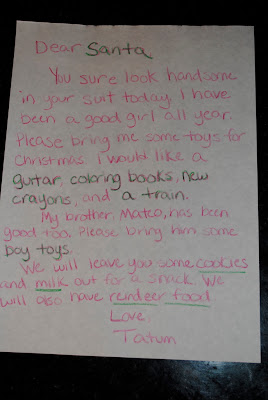 Dear Santa
You sure look handsome
in your suit today. I have
been a good girl all year.
Please bring me some toys for
Christmas. I would like a
guitar, coloring books, new
crayons, and a train.
My brother, Mateo, has been
good too. Please bring him some
boy toys.
We will leave you some cookies
and milk out for a snack. We
will also have reindeer food.
Love,
Tatum